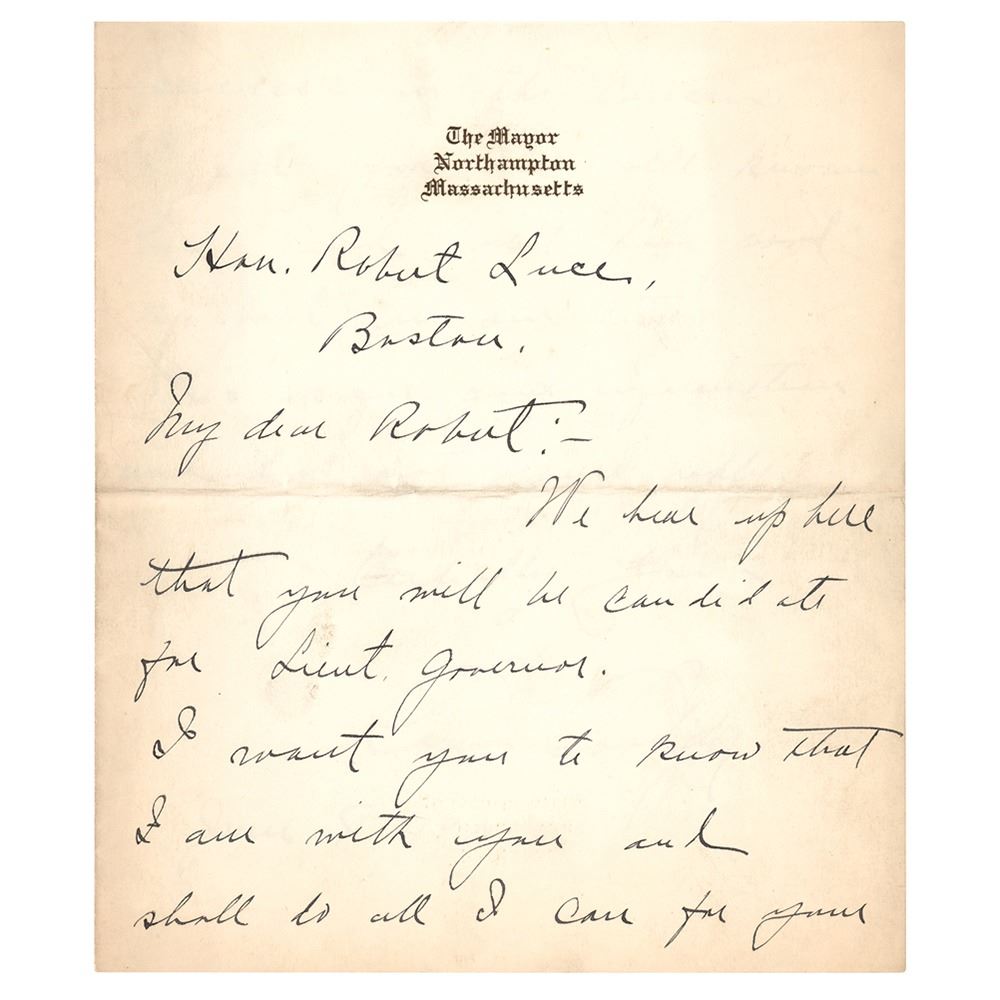 The Mayor
Northampton
Massachusetts
Hon. Robert Luce,
Boston.
My dear Robert:—
We hear up here
that you will be candidate
for Lieut. Governor.
I want you to know that
I am with you and
shall do all I can for your